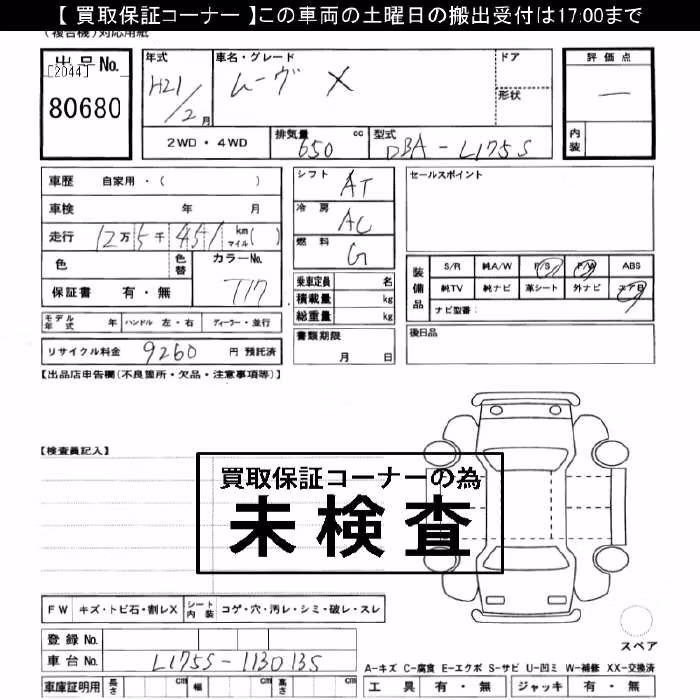 【 買取保証コーナー 】この車両の土曜日の搬出受付は17:00まで
(複合機)対応用紙
出品No.
[2044]
80680
年式
H21/2月
車名・グレード
ムーヴ X
ドア
形状
評価点
—
内装
2WD・4WD
排気量 650 cc
型式 DBA-L175S
車歴 自家用・( )
車検 年 月
走行 12万5千451 km マイル( )
色
色替
カラーNo. T17
保証書 有・無
モデル年式 年 ハンドル 左・右 ディーラー・並行
リサイクル料金 9260 円 預託済
シフト AT
冷房 AC
燃料 G
乗車定員 名
積載量 kg
総重量 kg
書類期限
月 日
セールスポイント
装備品
S/R 純A/W P/S P/W ABS
純TV 純ナビ 革シート 外ナビ エアB
ナビ型番:
後日品
【出品店申告欄(不良箇所・欠品・注意事項等)】
【検査員記入】
買取保証コーナーの為
未検査
FW キズ・トビ石・割レX シート内装 コゲ・穴・汚レ・シミ・破レ・スレ
スペア
登録No.
車台No. L175S-1130135
A-キズ C-腐食 E-エクボ S-サビ U-凹ミ W-補修 XX-交換済
車庫証明用 長さ cm 幅 cm 高さ cm
工具 有・無 ジャッキ 有・無